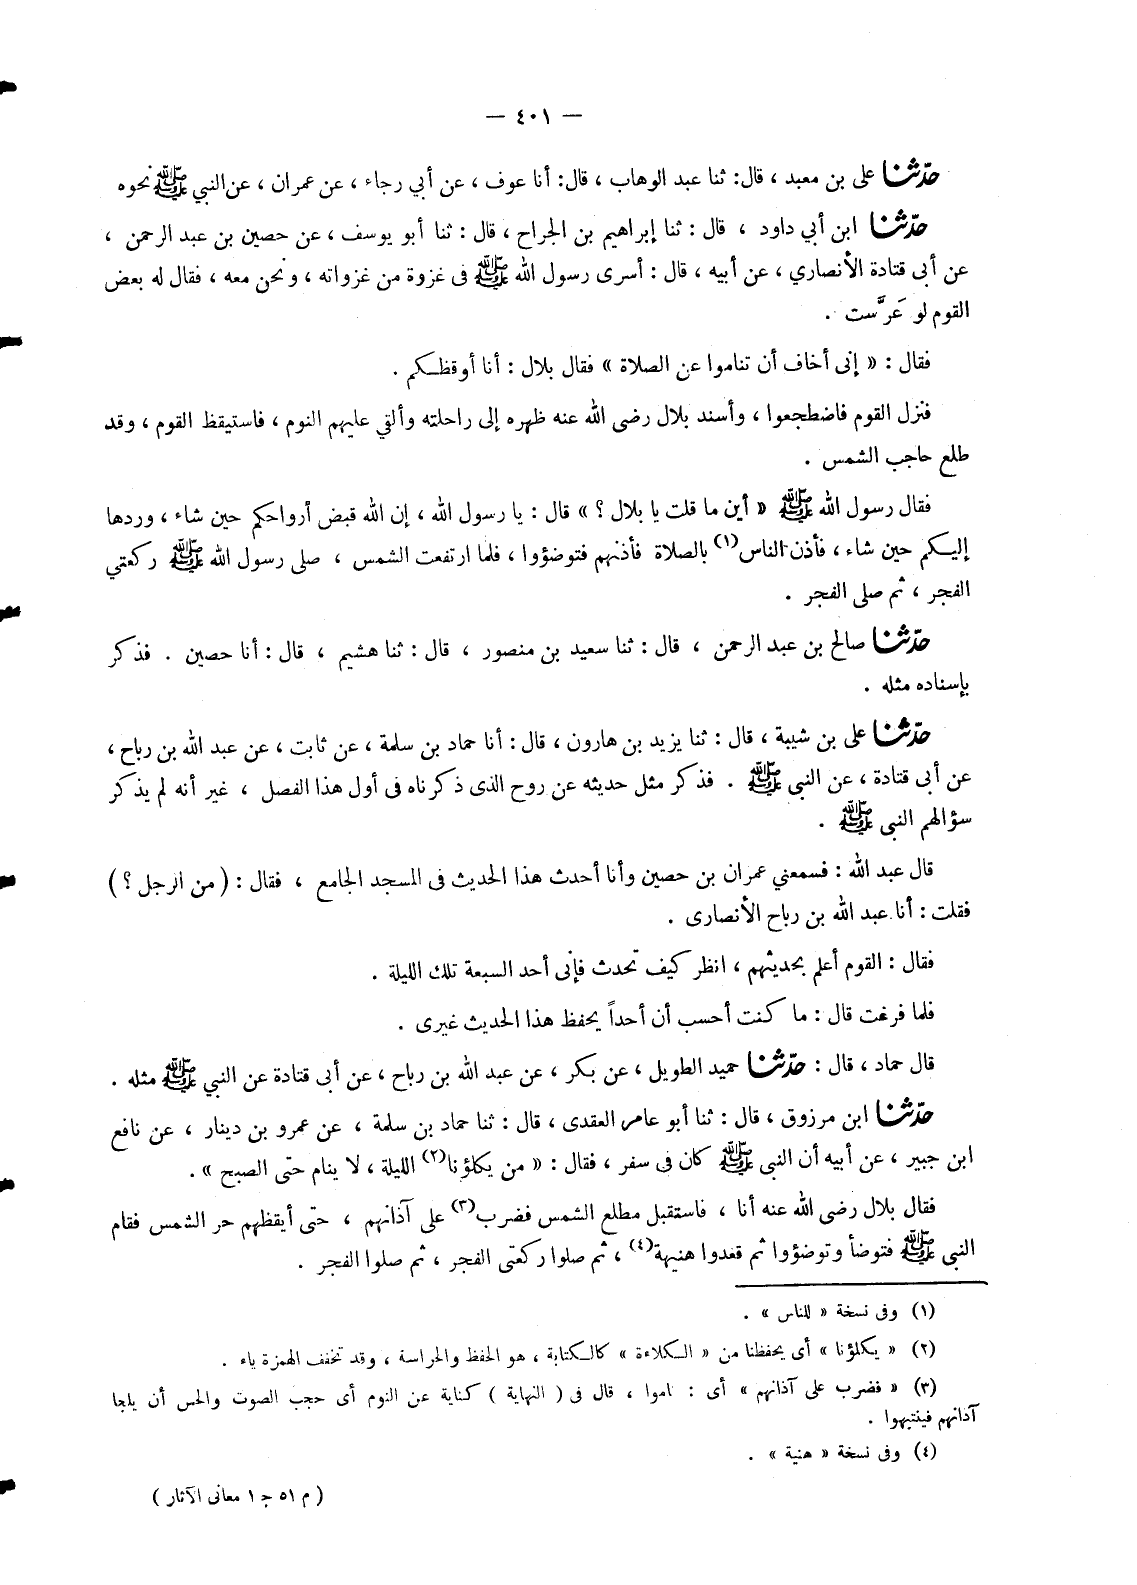 — ٤٠١ —
حدّثنا على بن معبد ، قال: ثنا عبد الوهاب ، قال: أنا عوف ، عن أبي رجاء ، عن عمران ، عن النبي ﷺ نحوه
حدّثنا ابن أبي داود ، قال : ثنا إبراهيم بن الجراح ، قال : ثنا أبو يوسف ، عن حصين بن عبد الرحمن ،
عن أبى قتادة الأنصاري ، عن أبيه ، قال : أسرى رسول الله ﷺ فى غزوة من غزواته ، ونحن معه ، فقال له بعض
القوم لو عَرَّست .
فقال : « إنى أخاف أن تناموا عن الصلاة » فقال بلال : أنا أوقظـكم .
فنزل القوم فاضطجعوا ، وأسند بلال رضى الله عنه ظهره إلى راحلته وألقي عليهم النوم ، فاستيقظ القوم ، وقد
طلع حاجب الشمس .
فقال رسول الله ﷺ « أين ما قلت يا بلال ؟ » قال : يا رسول الله ، إن الله قبض أرواحكم حين شاء ، وردها
إليـكم حين شاء ، فأذن الناس(١) بالصلاة فأذنهم فتوضؤوا ، فلما ارتفعت الشمس ، صلى رسول الله ﷺ ركعتي
الفجر ، ثم صلى الفجر .
حدّثنا صالح بن عبد الرحمن ، قال : ثنا سعيد بن منصور ، قال : ثنا هشيم ، قال : أنا حصين . فذكر
بإسناده مثله .
حدّثنا على بن شيبة ، قال : ثنا يزيد بن هارون ، قال : أنا حماد بن سلمة ، عن ثابت ، عن عبد الله بن رباح ،
عن أبى قتادة ، عن النبى ﷺ . فذكر مثل حديثه عن روح الذى ذكرناه فى أول هذا الفصل ، غير أنه لم يذكر
سؤالهم النبى ﷺ .
قال عبد الله : فسمعني عمران بن حصين وأنا أحدث هذا الحديث فى المسجد الجامع ، فقال : ( من الرجل ؟ )
فقلت : أنا عبد الله بن رباح الأنصارى .
فقال : القوم أعلم بحديثهم ، انظر كيف تحدث فإنى أحد السبعة تلك الليلة .
فلما فرغت قال : ما كنت أحسب أن أحداً يحفظ هذا الحديث غيرى .
قال حماد ، قال : حدّثنا حميد الطويل ، عن بكر ، عن عبد الله بن رباح ، عن أبى قتادة عن النبي ﷺ مثله .
حدّثنا ابن مرزوق ، قال : ثنا أبو عامر العقدى ، قال : ثنا حماد بن سلمة ، عن عمرو بن دينار ، عن نافع
ابن جبير ، عن أبيه أن النبى ﷺ كان فى سفر ، فقال : « من يكلؤنا(٢) الليلة ، لا ينام حتى الصبح » .
فقال بلال رضى الله عنه أنا ، فاستقبل مطلع الشمس فضرب(٣) على آذانهم ، حتى أيقظهم حر الشمس فقام
النبى ﷺ فتوضأ وتوضؤوا ثم قعدوا هنيهة(٤) ، ثم صلوا ركعتى الفجر ، ثم صلوا الفجر .
(١) وفى نسخة « للناس » .
(٢) « يكلؤنا » أى يحفظنا من « الـكلاءة » كالـكتابة ، هو الحفظ والحراسة ، وقد تخفف الهمزة ياء .
(٣) « فضرب على آذانهم » أى : ناموا ، قال فى ( النهاية ) كناية عن النوم أى حجب الصوت والحس أن يلجا
آذانهم فينتبهوا .
(٤) وفى نسخة « هنية » .
( م ٥١ ج ١ معانى الآثار )